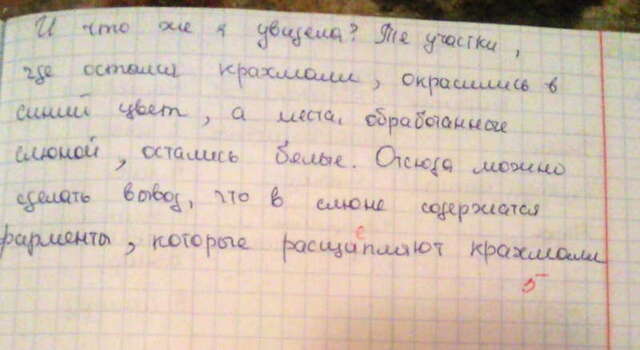 И что же я увидела? Те участки,
где остался крахмали, окрасились в
синий цвет, а места, обработанные
слюной, остались белые. Отсюда можно
сделать вывод, что в слюне содержатся
фарменты, которые расщапляют крахмали
е
5